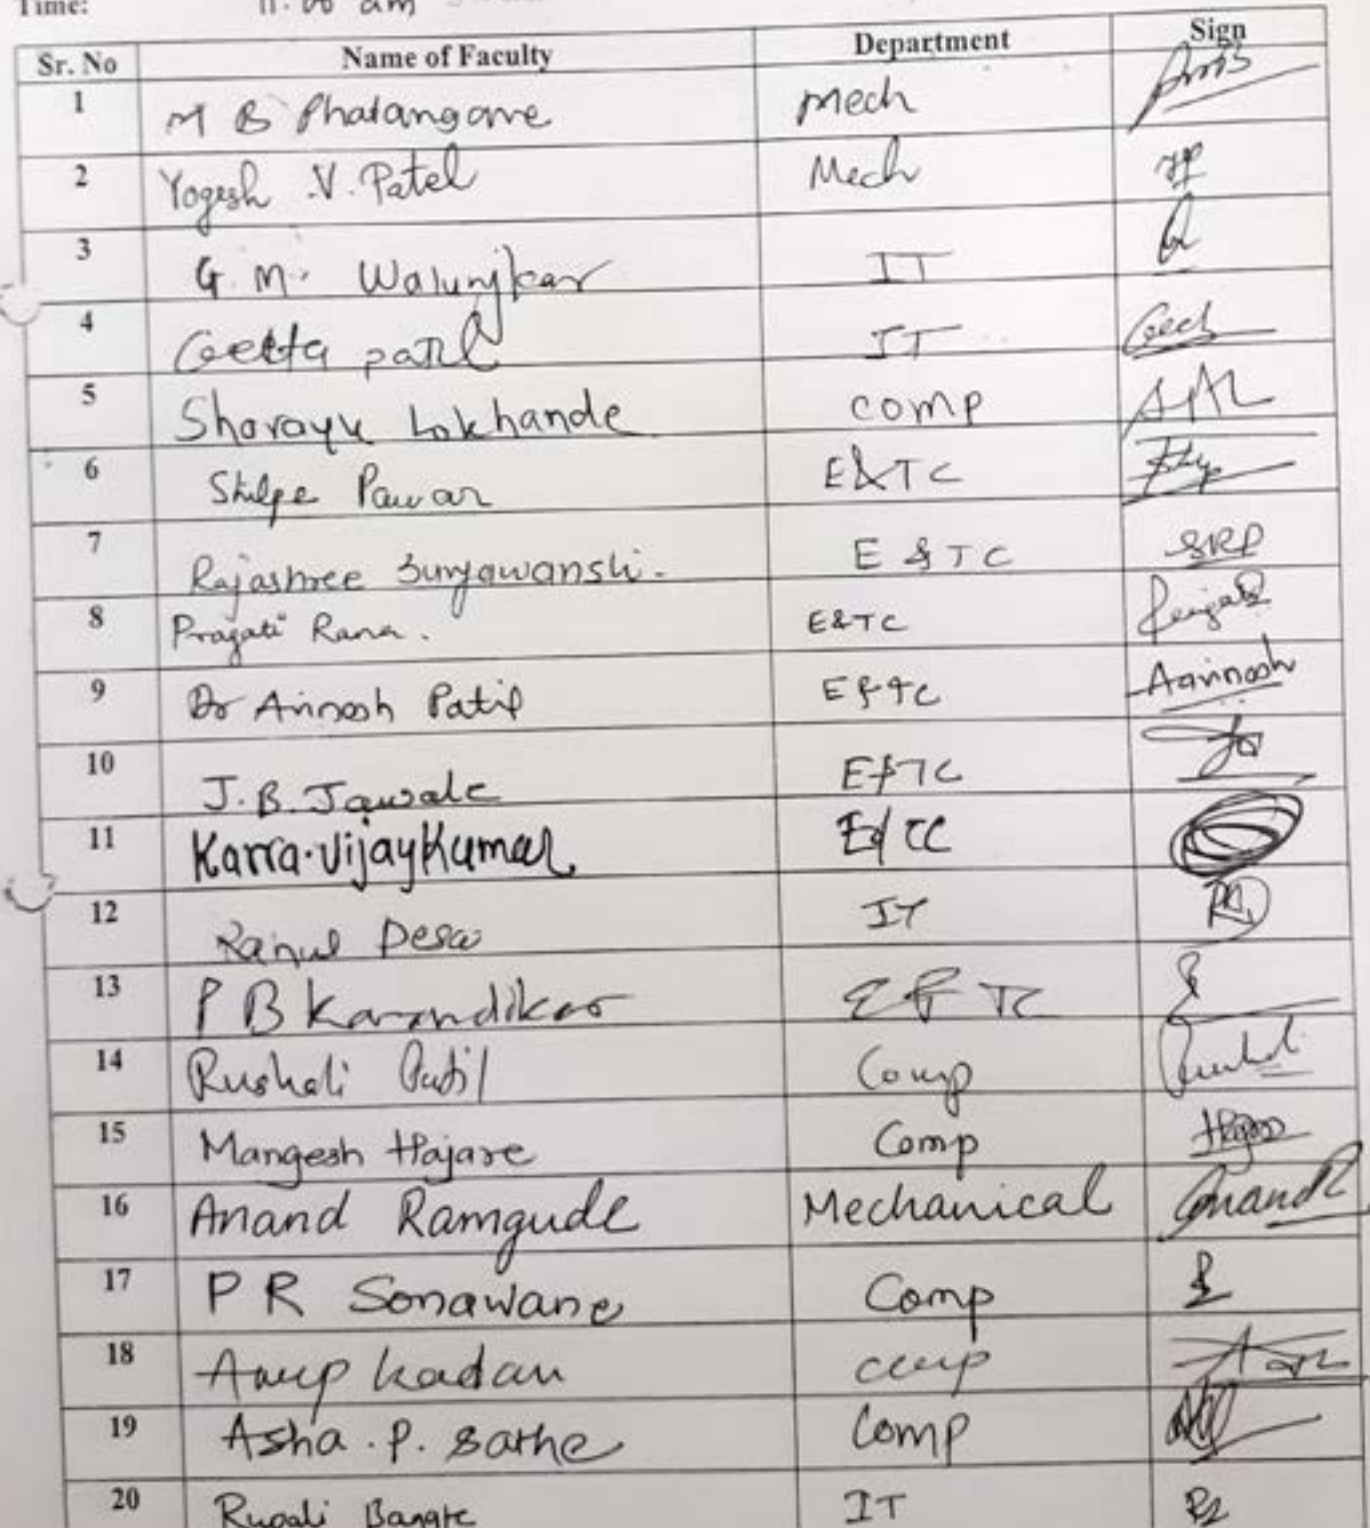 Time: 11.00 am
Sr. No Name of Faculty Department Sign
1 M B Phalangane Mech
2 Yogesh .V. Patel Mech
3 G. M. Walunjkar IT
4 Geetta patil IT
5 Sharayu Lokhande comp
6 Shilpa Pawar E&TC
7 Rajashree Suryawanshi. E & TC SRP
8 Pragati Rana. E&TC
9 Dr Avinash Patil E&TC Aavinash
10 J.B. Jawale E&TC
11 Karra.VijayKumar E/TC
12 Rahul Desai IT
13 P B Karandikar E & TC
14 Rushali Patil Comp
15 Mangesh Hajare Comp
16 Anand Ramgude Mechanical AnandR
17 P R Sonawane Comp
18 Anup kadam comp
19 Asha . P. Sathe Comp
20 Rupali Bangte IT